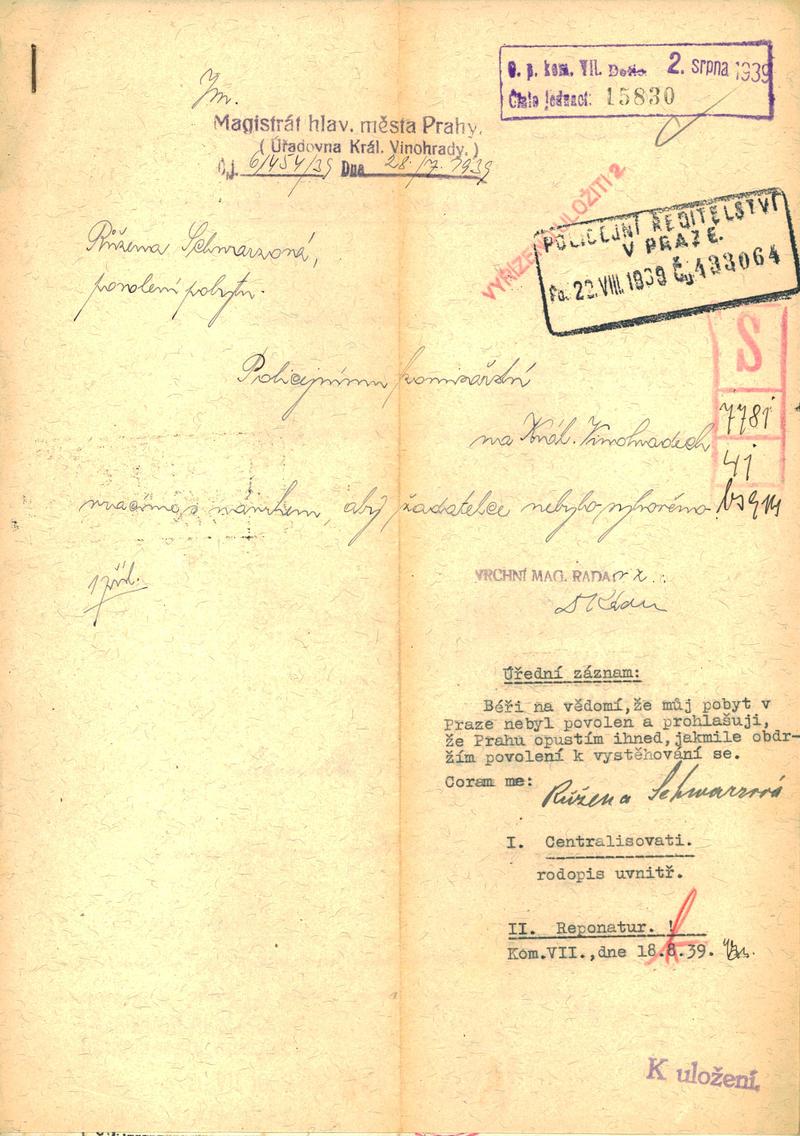 O. p. kom. VII. Došlo 2. srpna 1939
Číslo jednací: 15830
Magistrát hlav. města Prahy.
( Úřadovna Král. Vinohrady. )
Čj. 6/454/39 Dna 28./7. 1939
VYŘÍZENO ULOŽITI 2
POLICEJNÍ ŘEDITELSTVÍ
V PRAZE.
22. VIII. 1939
Růžena Schwarzová,
povolení pobytu.
S
7781
41
Policejnímu komisařství
na Král. Vinohradech
vracím s návrhem, aby žadatelce nebylo vyhověno.
1 příl.
VRCHNÍ MAG. RADA
Úřední záznam:
Béři na vědomí,že můj pobyt v
Praze nebyl povolen a prohlašuji,
že Prahu opustím ihned,jakmile obdr-
žím povolení k vystěhování se.
Coram me:
Růžena Schwarzová
I. Centralisovati.
rodopis uvnitř.
II. Reponatur. !
Kom.VII.,dne 18.8.39.
K uložení.